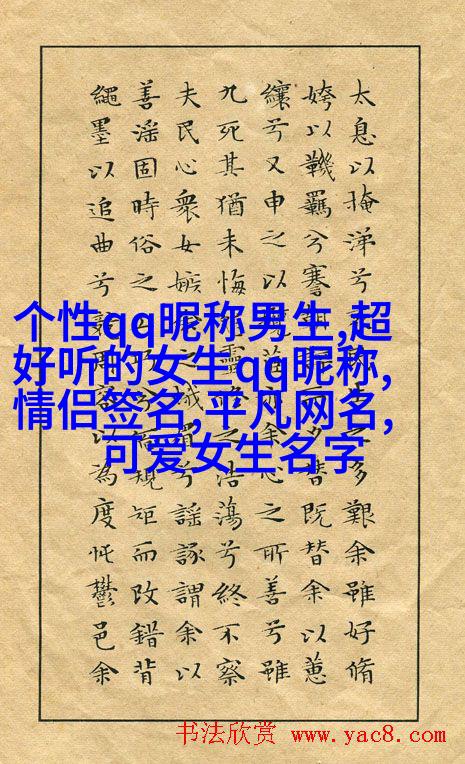 太息以掩涕兮多艱余雖好脩
姱以鞿羈兮謇朝而夕替既替余以蕙
纕兮又申之以亦余心之所善兮雖
九死其猶未悔靈之浩蕩兮終不察
夫民心衆女嫉之眉兮謡諑謂余以
善淫固時俗之巧兮規矩而改錯背
繩墨以追曲兮競以為度忳鬱邑余
个性qq昵称男生,超
好听的女生qq昵称,
情侣签名,平凡网名,
可爱女生名字
书法欣赏 www.yac8.com